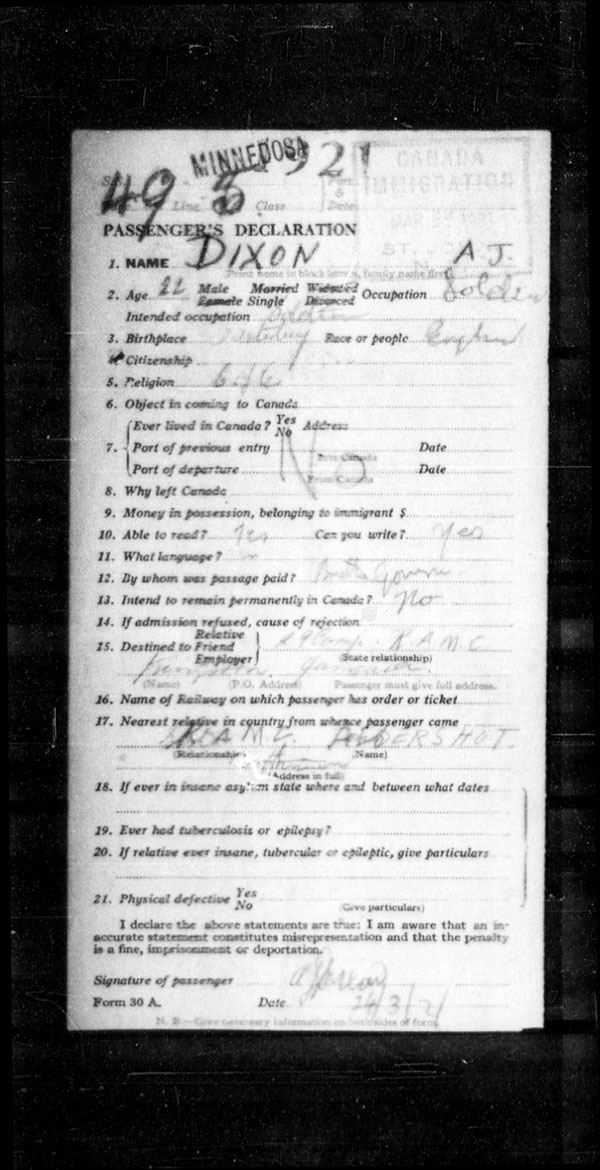 MINNEDOSA
CANADA
IMMIGRATION
49 Line Class Date
PASSENGER'S DECLARATION
1. NAME DIXON A J.
Print name in block letters, family name first
2. Age 22 Male Married Widowed Occupation Soldier
Female Single Divorced
Intended occupation
3. Birthplace Race or people
4. Citizenship
5. Religion C of E
6. Object in coming to Canada
Ever lived in Canada? Yes No Address
7. Port of previous entry Date
No
Port of departure Date
From Canada
8. Why left Canada
9. Money in possession, belonging to immigrant $
10. Able to read? Yes Can you write? Yes
11. What language?
12. By whom was passage paid?
13. Intend to remain permanently in Canada? No
14. If admission refused, cause of rejection
Relative
15. Destined to Friend R.A.M.C
Employer (State relationship)
(Name) (P.O. Address) Passenger must give full address.
16. Name of Railway on which passenger has order or ticket
17. Nearest relative in country from whence passenger came
R A M C. ALDERSHOT.
(Relationship) (Name)
(Address in full)
18. If ever in insane asylum state where and between what dates
19. Ever had tuberculosis or epilepsy?
20. If relative ever insane, tubercular or epileptic, give particulars
21. Physical defective Yes
No (Give particulars)
I declare the above statements are true: I am aware that an in-
accurate statement constitutes misrepresentation and that the penalty
is a fine, imprisonment or deportation.
Signature of passenger
Form 30 A. Date 24/3/21
N. B.—Give necessary information on both sides of form.